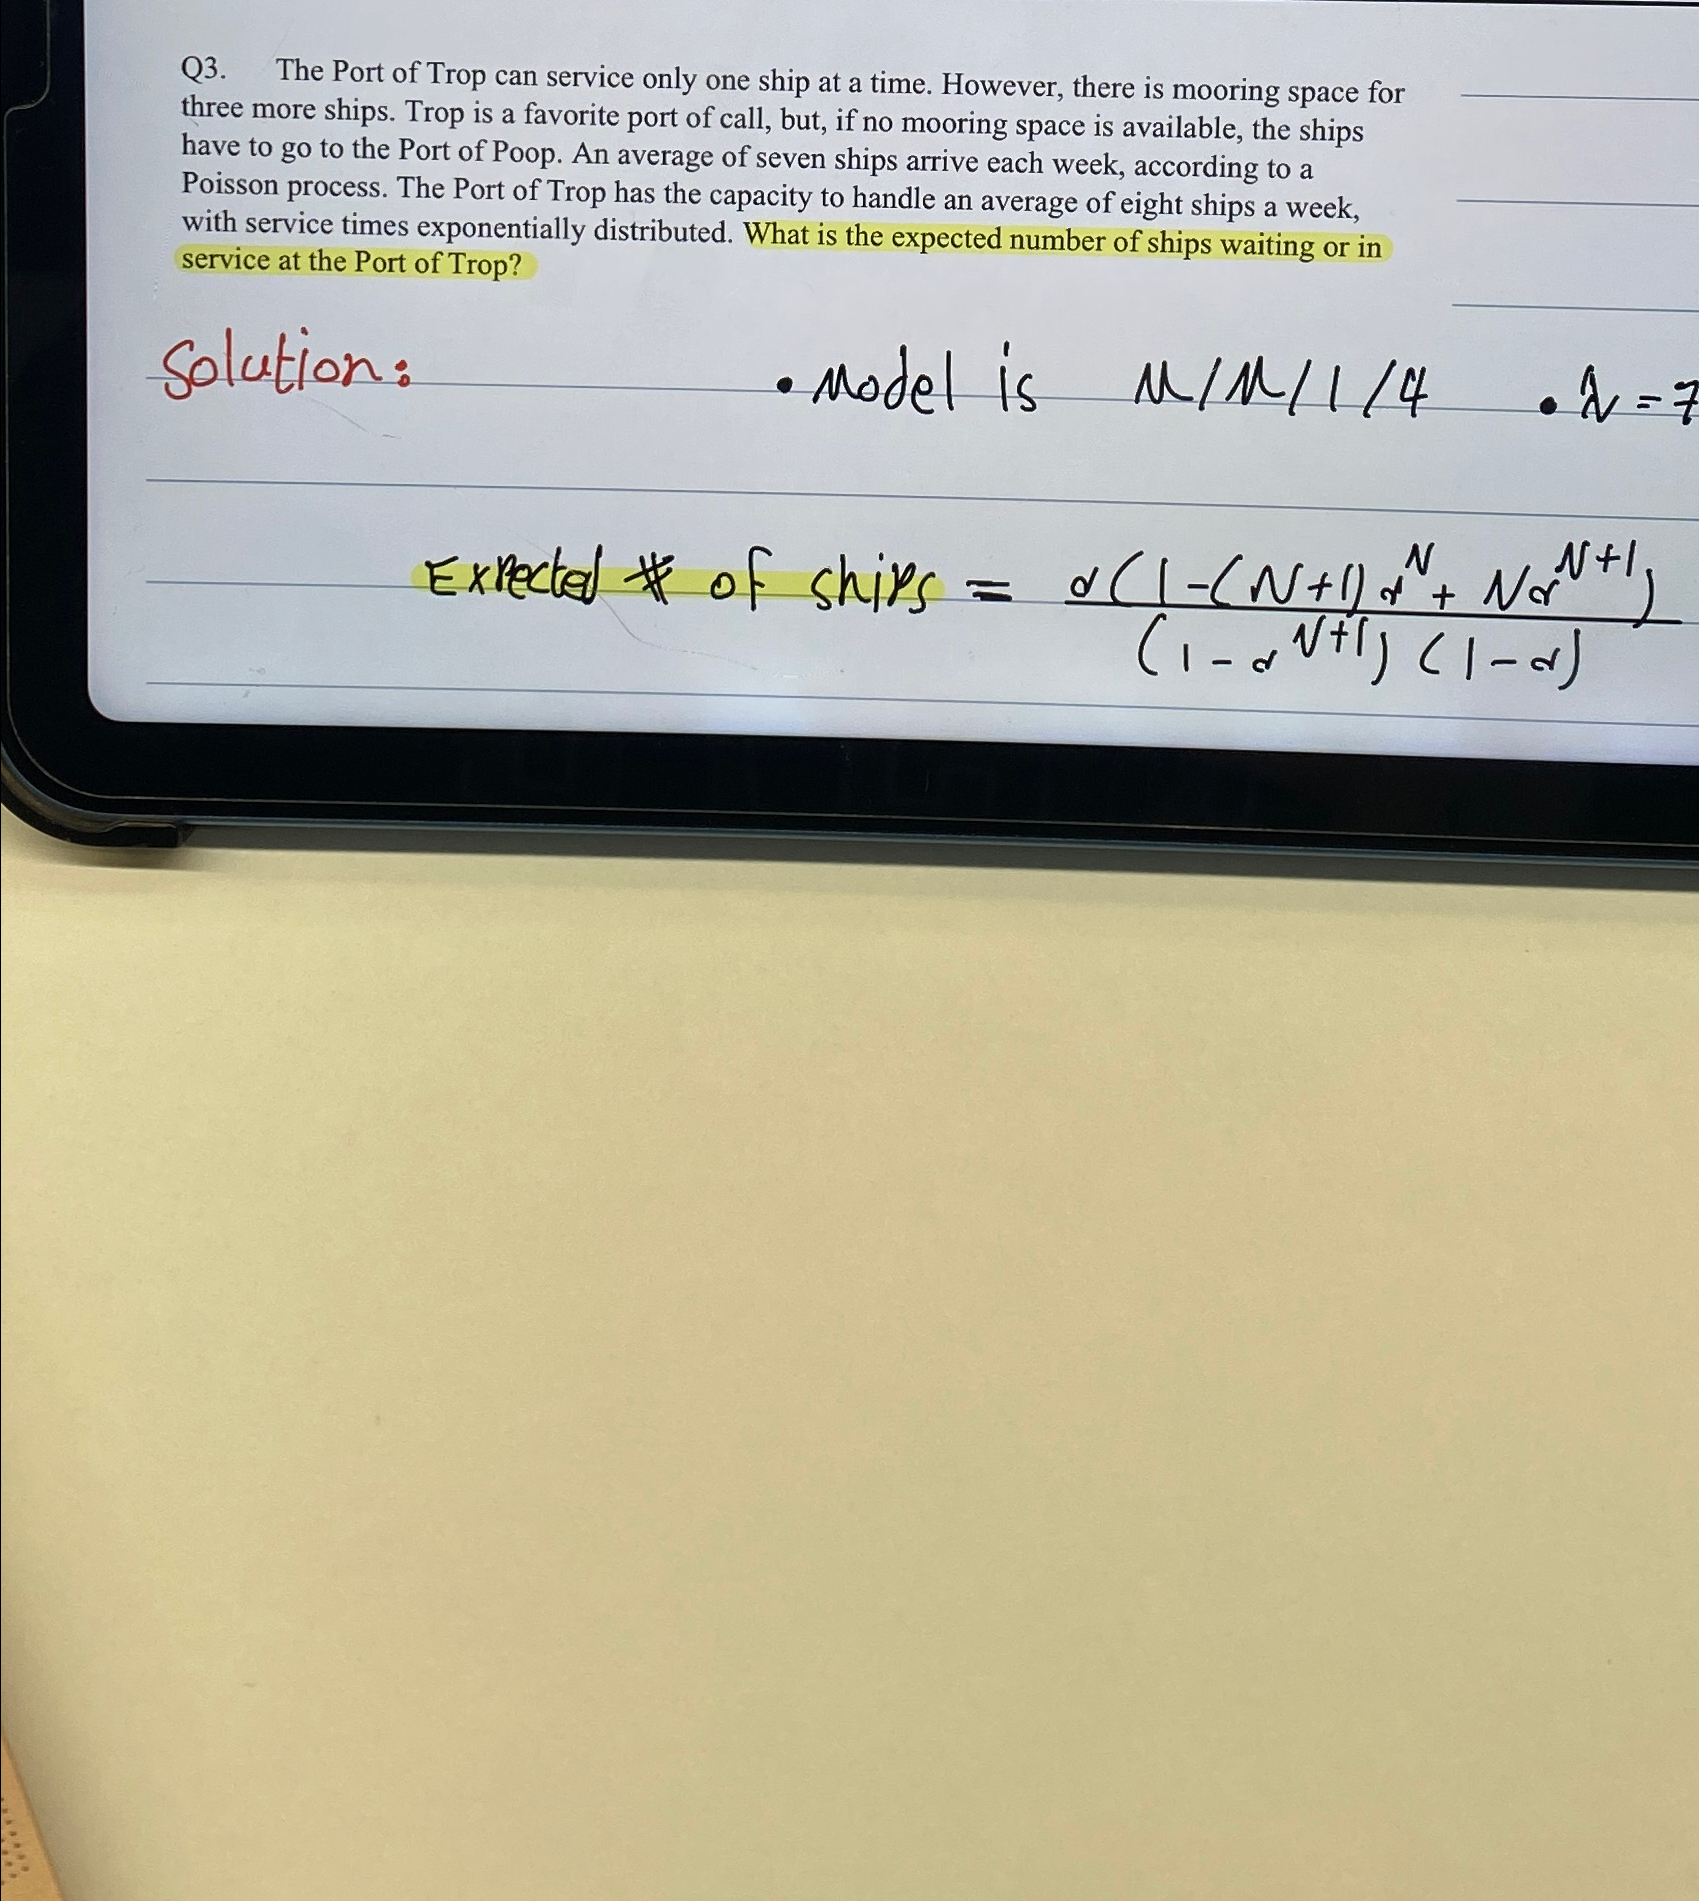 Q3. The Port of Trop can service only one ship at a time. However, there is mooring space for
three more ships. Trop is a favorite port of call, but, if no mooring space is available, the ships
have to go to the Port of Poop. An average of seven ships arrive each week, according to a
Poisson process. The Port of Trop has the capacity to handle an average of eight ships a week,
with service times exponentially distributed. What is the expected number of ships waiting or in
service at the Port of Trop?
Solution: • Model is M/M/1/4 • λ = 7
Expected # of ships = α(1-(N+1)α^N + Nα^N+1)
(1-α^N+1)(1-α)